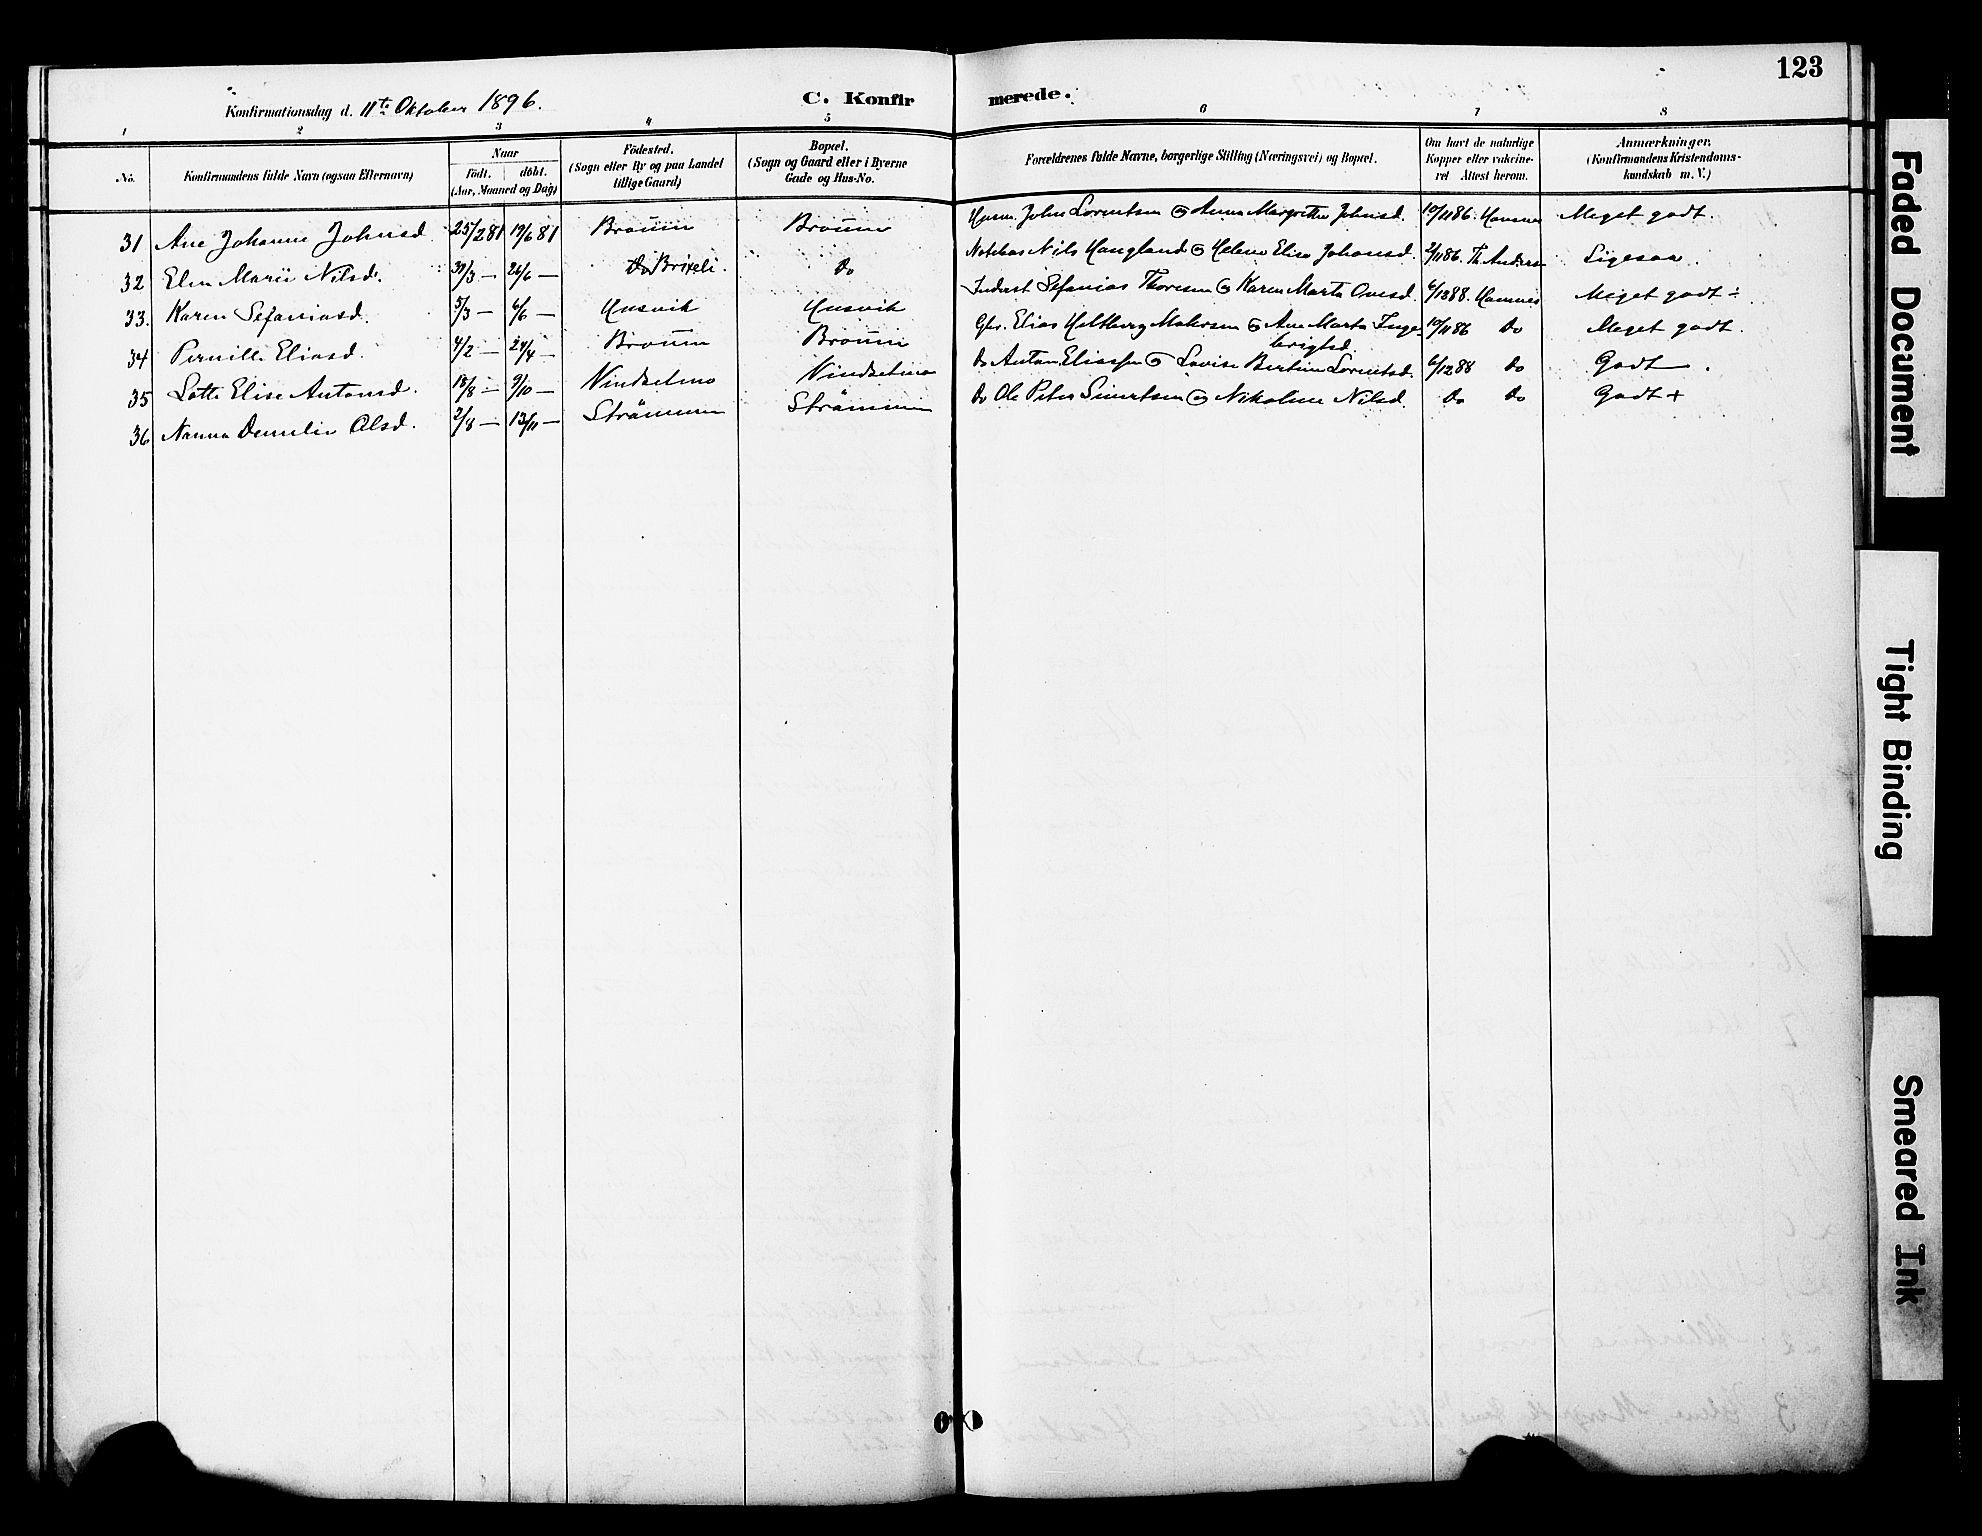 123
Konfirmationsdag d. 11te Oktober 1896.
C. Konfirmerede.
1 2 3 4 5 6 7 8
No.
Konfirmandens fulde Navn (ogsaa Efternavn)
Naar
födt. döbt.
(Aar, Maaned og Dag)
Födested.
(Sogn eller By og paa Landet
tillige Gaard)
Bopæl.
(Sogn og Gaard eller i Byerne
Gade og Hus-No.
Forældrenes fulde Navne, borgerlige Stilling (Næringsvei) og Bopæl.
Om havt de naturlige
Kopper eller vakcine-
ret Attest herom.
Anmærkninger.
(Konfirmandens Kristendoms-
kundskab m. V.)
31 Ane Johanne Johnsd. 25/2 81 19/6 81 John Lorentsen Anna Margrethe Johnsd. 10/11 86. Meget godt.
32 Elen Marie Nilsd. — 26/6 — Do Do Nils Haugland Helene Elisa Johansd. Th. Anders Ligesaa.
33. Karen Sefaniasd. 5/3 — 6/6 — Husvik Husvik Inderst Sefanias Thoresen Karen Marta Meget godt ÷
34 Pernille Eliasd. 4/2 — 24/4 — Elias Holtberg Ane Marta Inge-
brigtsd. 10/11 86 Do Meget godt.
35 Lotte Elise Antonsd. 18/8 — 9/10 — Vindsetmo Vindsetmo Do Anton Eliassen Lovise Bertine Lorentsd. 6/12 88 Do Godt.
36 Nanna Olsd. 2/8 — 13/11 — Strömmen Strömmen Do Ole Peter Sivertsen Nikoline Nilsd. Do Do Godt +
Faded Document
Tight Binding
Smeared Ink